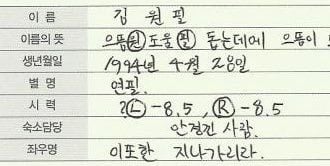 이 름 김 원 필
이름의 뜻 으뜸원 도울필 돕는데에 으뜸이
생년월일 1994년 4월 28일
별 명 연필.
시 력 L -8.5, R -8.5
숙소담당 안경낀 사람.
좌우명 이또한 지나가리라.